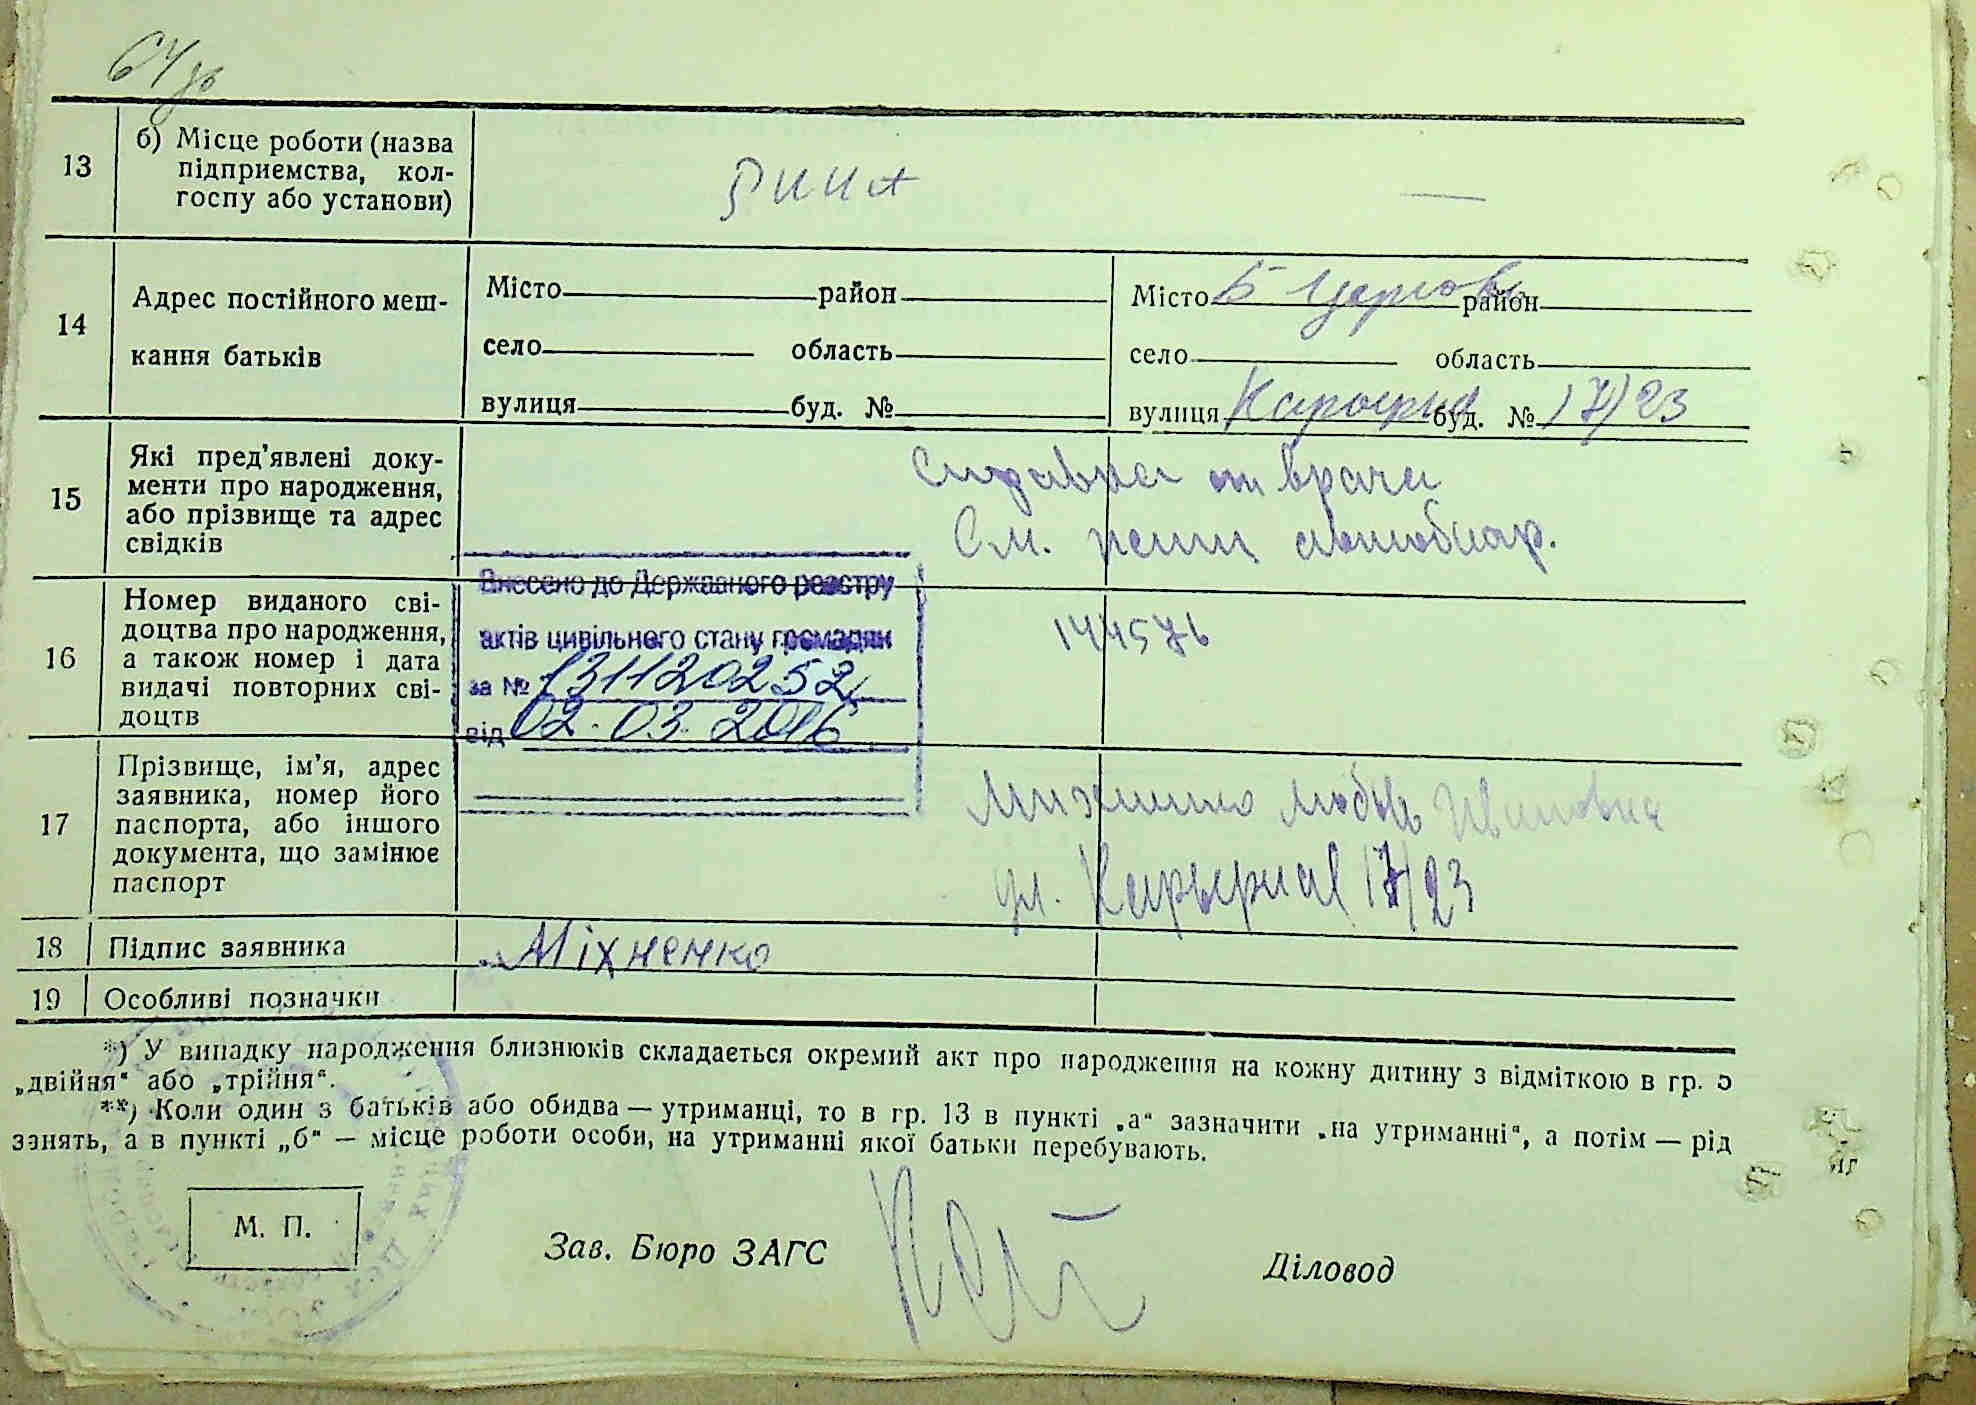 64
13
б) Місце роботи (назва
підприємства, кол-
госпу або установи)
—
14
Адрес постійного меш-
кання батьків
Місто район
село область
вулиця буд. №
Місто Б Церковь район
село область
вулиця Карьерная буд. № 17/23
15
Які пред'явлені доку-
менти про народження,
або прізвище та адрес
свідків
Справка от врача
См.
16
Номер виданого сві-
доцтва про народження,
а також номер і дата
видачі повторних сві-
доцтв
Внесено до Державного реєстру
актів цивільного стану громадян
за № 1311202521
від 02.03.2016
144576
17
Прізвище, ім'я, адрес
заявника, номер його
паспорта, або іншого
документа, що замінює
паспорт
Михненко Любовь Ивановна
ул. Карьерная 17/23
18
Підпис заявника
Міхненко
19
Особливі позначки
*) У випадку народження близнюків складається окремий акт про народження на кожну дитину з відміткою в гр. 5
„двійня“ або „трійня“.
**) Коли один з батьків або обидва — утриманці, то в гр. 13 в пункті „а“ зазначити „на утриманні“, а потім — рід
занять, а в пункті „б“ — місце роботи особи, на утриманні якої батьки перебувають.
М. П.
Зав. Бюро ЗАГС
Діловод